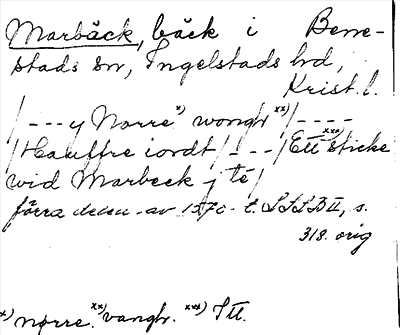 Marbäck, bäck i Benne-
stads sn, Ingelstads hd,
Krist. l.
/---y Norre x) wongh xx)/----
/Hauffre iordt/---/Ett xxx) sticke
wid Marbeck j té/
förra delen av 1570-t. LSSB II, s.
318. orig
x) norre. xx) vangh. xxx) Itt.